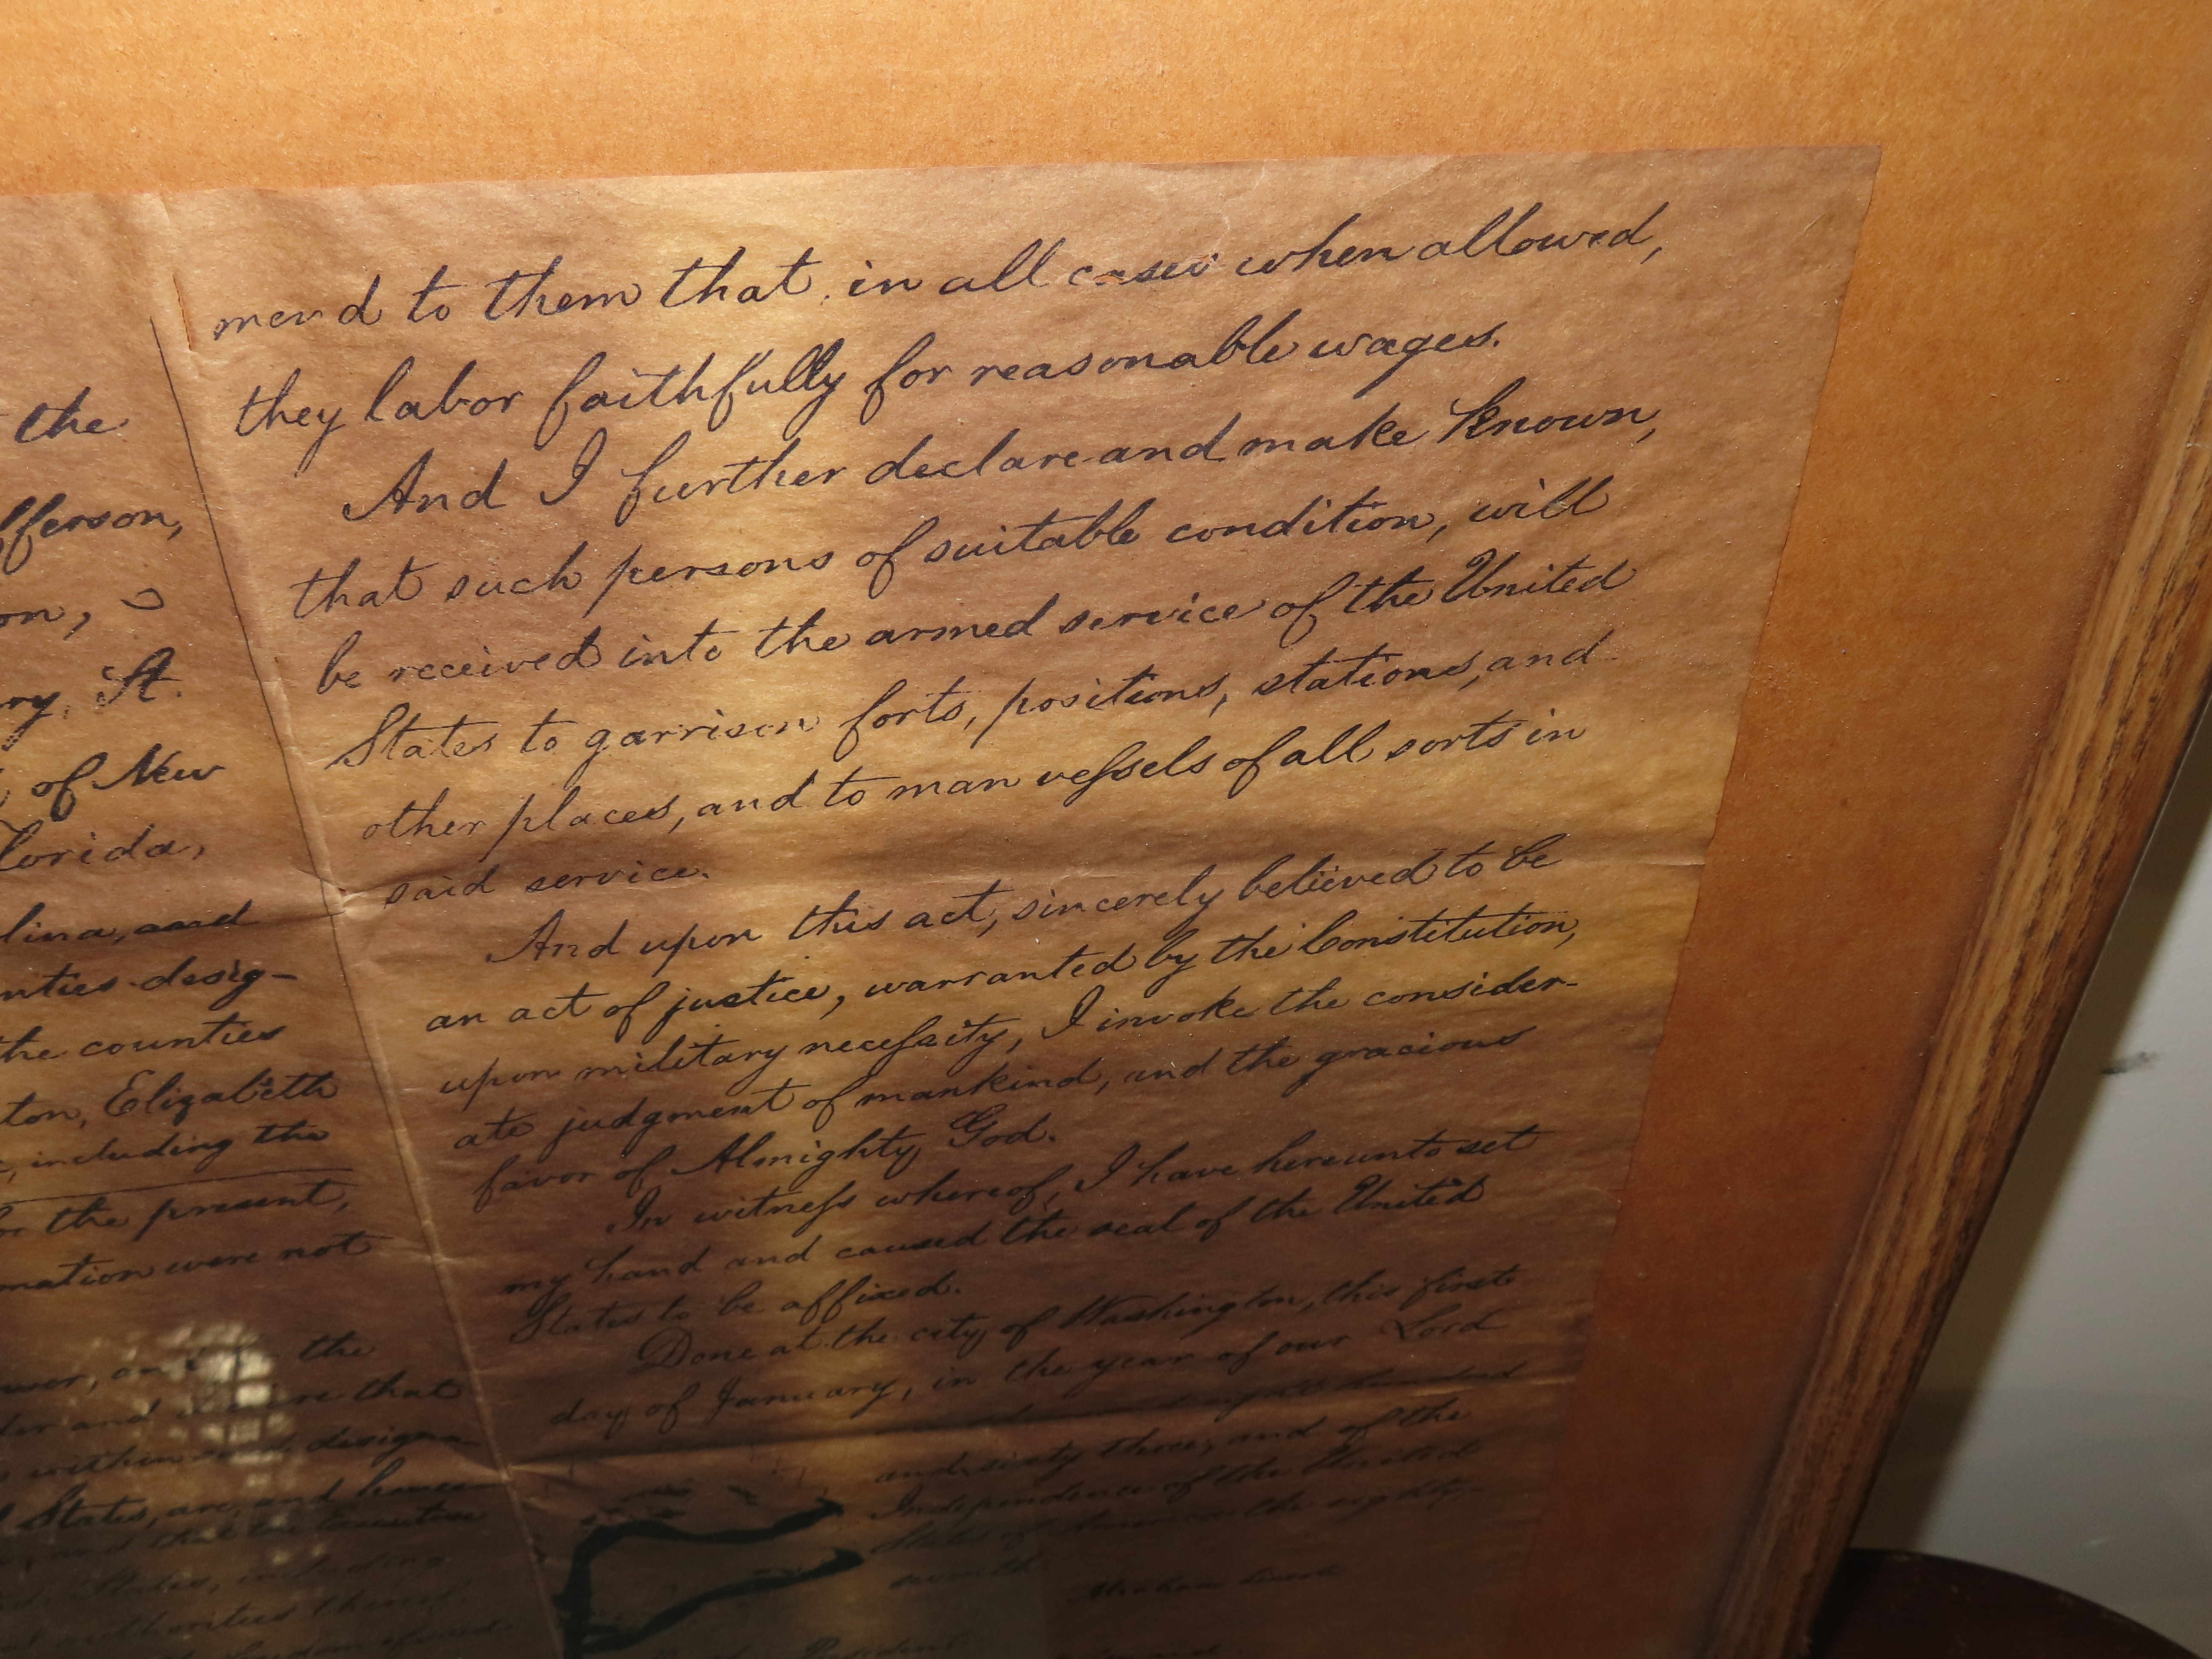 the
fferson,
on,
ry, St.
of New
lorida,
lina, and
nties desig-
the counties
ton, Elizabeth
, including the
for the present,
mation were not
the
der and that
within designa-
States, are, and hence-
and that the Executive
States, including
mend to them that, in all cases when allowed,
they labor faithfully for reasonable wages.
And I further declare and make known,
that such persons of suitable condition, will
be received into the armed service of the United
States to garrison forts, positions, stations, and
other places, and to man vessels of all sorts in
said service.
And upon this act, sincerely believed to be
an act of justice, warranted by the Constitution,
upon military necessity, I invoke the consider-
ate judgment of mankind, and the gracious
favor of Almighty God.
In witness whereof, I have hereunto set
my hand and caused the seal of the United
States to be affixed.
Done at the city of Washington, this first
day of January, in the year of our Lord
eight hundred
and sixty three, and of the
Independence of the United
States of America the eighty-
seventh.
Abraham Lincoln
President